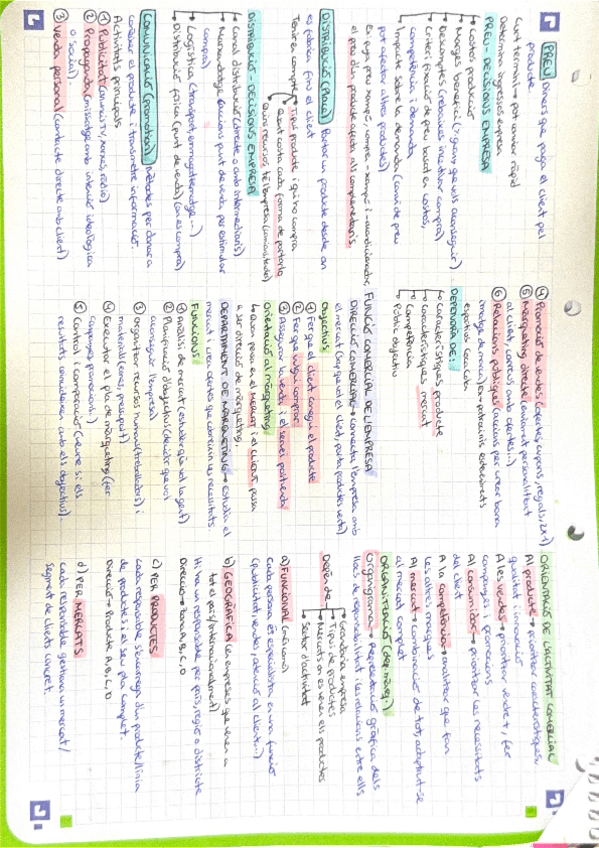 PREU Diners que paga el client pel
producte.
Curt termini → pot canviar ràpid
Determina ingressos empresa
PREU - DECISIONS EMPRESA
↳ Costos producció
↳ Marges benefici
↳ Descomptes (rebaixes incentivar compra)
↳ Criteri fixació de preu basat en costos,
competència i demanda
↳ Impacte sobre la demanda (canvi de preu
pot afectar altres productes)
el preu d'un producte afecta als complementaris.
DISTRIBUCIÓ (place) Portar un producte desde on
es fabrica fins el client
Tenir en compte
Tipus producte i qui ho compra
quant costa cada forma de portarlo
quins recursos té l'empresa
DISTRIBUCIÓ - DECISIONS EMPRESA
↳ Canal distribució (directe o amb intermediaris)
↳ Marxandatge (accions punt de venda per estimular
compra)
↳ Logística (transport, emmagatzematge...)
↳ Distribució física (punt de venda) (on es compra)
COMUNICACIÓ (promotion) Mètodes per donar a
conèixer el producte i transmetre informació.
Activitats principals
① Publicitat (anuncis TV, xarxes, ràdio)
② Propaganda (missatge amb intenció ideològica
o social).
③ Venda personal (contacte directe amb client)
④ Promoció de vendes (ofertes, cupons, regals, 2x1)
⑤ Màrqueting directe (enviament personalitzat
al client, correus amb ofertes...)
⑥ Relacions públiques (accions per crear bona
imatge de marca) Ex → patrocinis esdeveniments
esportius Coca Cola
DEPENDRÀ DE:
↳ característiques producte
↳ característiques mercat
↳ Competència
↳ Públic objectiu
FUNCIÓ COMERCIAL DE L'EMPRESA
DIRECCIÓ COMERCIAL → connecta l'empresa amb
el mercat (sap què vol el client, porta productes, vents)
Objectius
① Fer que el client conegui el producte
② Fer que vulgui comprar
③ Assegurar la venda i el servei postvenda
Orientació al màrqueting
↳ Quan pensa en el MERCAT i el client passa
a ser direcció de màrqueting.
DEPARTAMENT DE MARQUETING → estudia el
mercat i crea ofertes que cobreixin les necessitats.
FUNCIONS
① Anàlisi de mercat (estudiar què vol la gent)
② Planificació d'objectius (decidir què vol
aconseguir l'empresa)
③ Organitzar recursos humans (treballadors) i
materials (eines, pressupost)
④ Executar el pla de màrqueting (fer
campanyes, promocions...)
⑤ Control i comparació (veure si els
resultats coincideixen amb els objectius).
ORIENTACIÓ DE L'ACTIVITAT COMERCIAL
Al producte → prioritzar característiques
qualitat i innovació
A les vendes → prioritzar vendre +, fer
campanyes i promocions
Al consumidor → prioritzar les necessitats
del client
A la competència → analitzar què fan
les altres marques
Al mercat → combinació de tot, adaptar-se
al mercat complet
ORGANITZACIÓ (dep. màrq.)
Organigrama → Representació gràfica dels
llocs de responsabilitat i les relacions entre ells
Depèn de
↳ Grandària empresa
↳ Tipus de productes
↳ Mercats on es venen els productes
↳ Sector d'activitat
a) FUNCIONAL
Cada persona és especialista en una funció
(publicitat, vendes, atenció al client...)
b) GEOGRÀFICA (a empreses que venen a
tot el país/internacionalment)
Hi ha un responsable per país, regió o districte
Direcció → Zona A, B, C, D
c) PER PRODUCTES
Cada responsable s'encarrega d'un producte/línia
de productes i el seu pla complet.
Direcció → Producte A, B, C, D
d) PER MERCATS
cada responsable gestiona un mercat /
segment de clients concret.